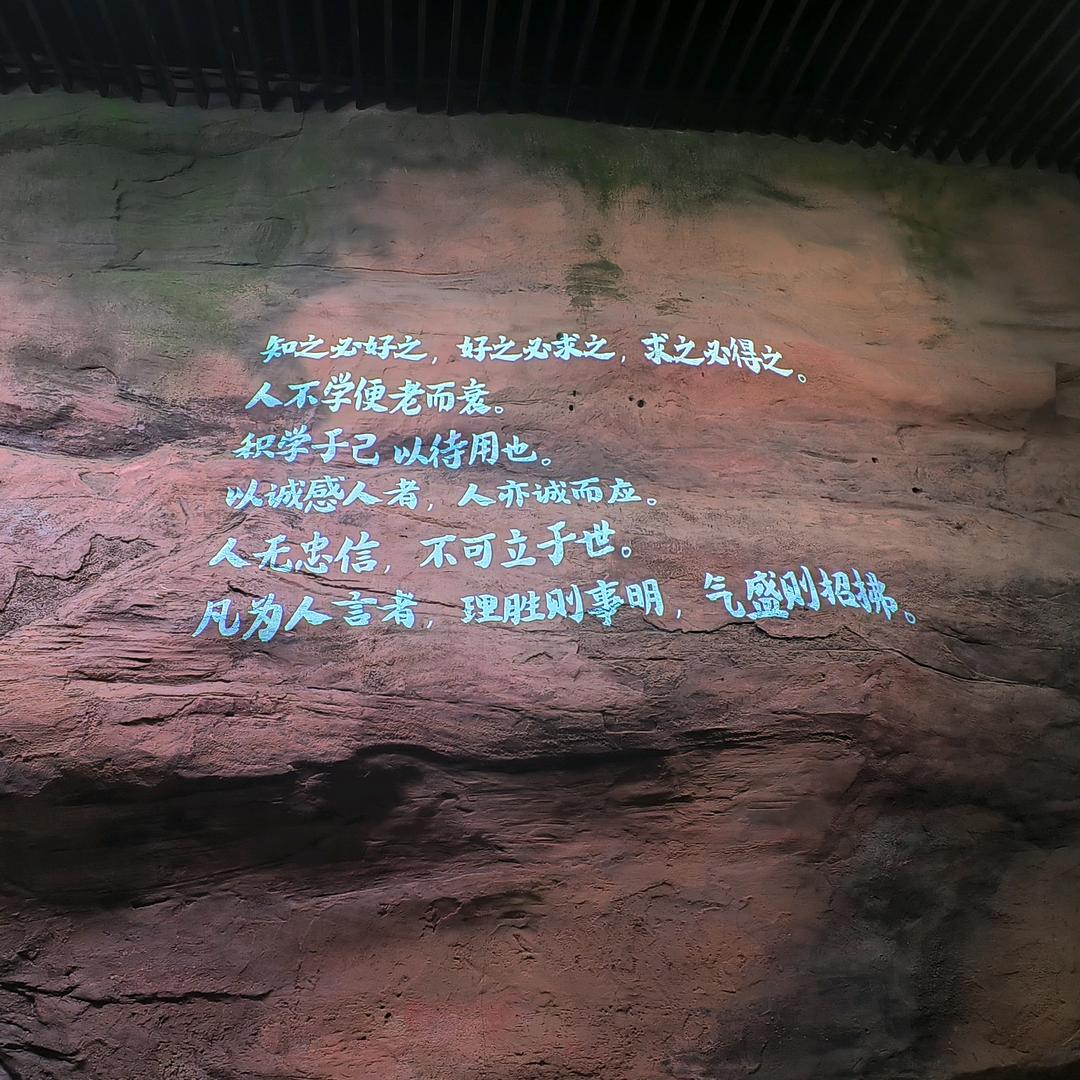 知之必好之，好之必求之，求之必得之。
人不学便老而衰。
积学于己 以待用也。
以诚感人者，人亦诚而应。
人无忠信，不可立于世。
凡为人言者，理胜则事明，气盛则招拂。